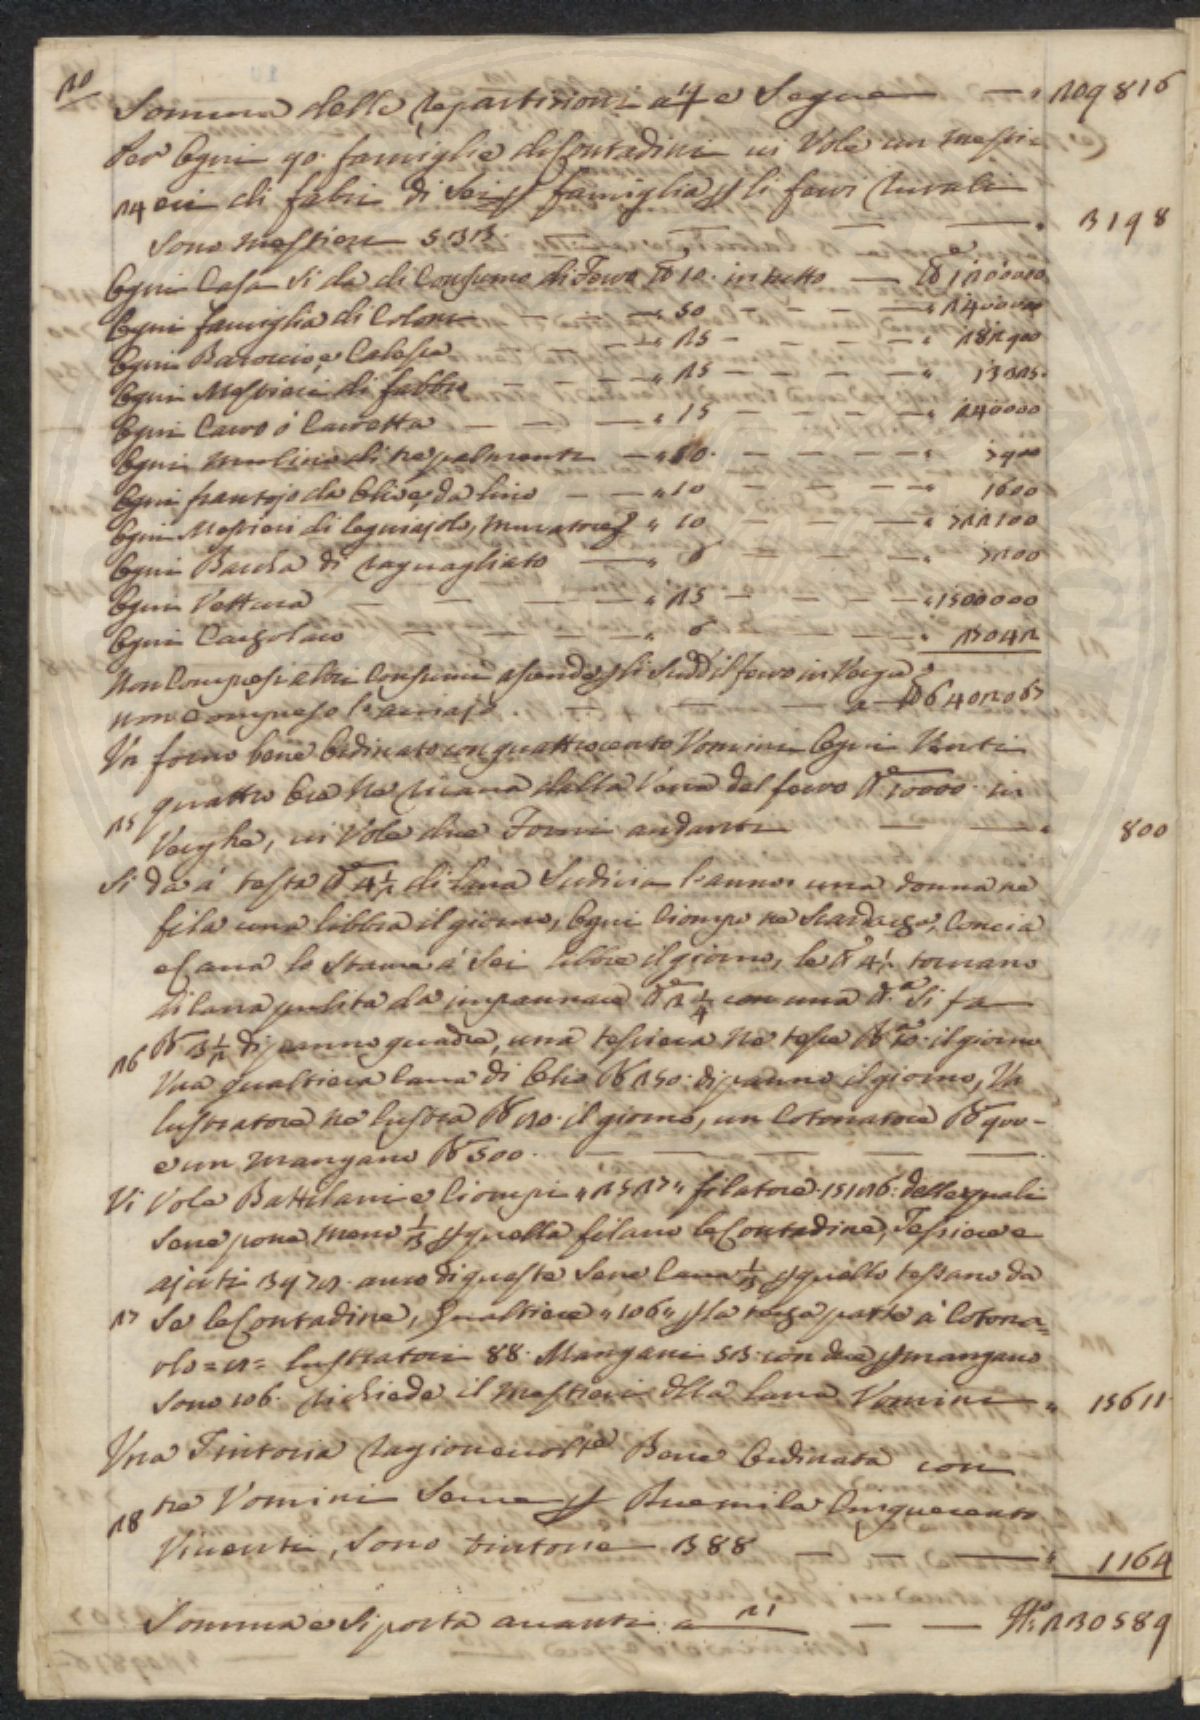 20
Somma delle repartizioni a 19 e Segue — " 209816
Per Ogni 90 famiglie di Contadini vi Vole un mesti=
24 eri di fabri di Sei p famiglia p li ferri Rurali
sono mestieri 533. — — " 3198
Ogni Casa si da di Consumo di Ferro ℔ 10. in tutto — ℔ 1200000
Ogni famiglia di Coloni — — — " 50 — — — — " 2400000
Ogni Baroccio, e Calesse — — — " 25 — — — — " 282900
Ogni Mestieri di fabbro — — — " 25 — — — — " 13325.
Ogni Carro ó Carretta — — — " 15 — — — — " 240000
Ogni mulino di tre palmenti — " 80. — — — — " 7900
Ogni frantojo da Olio, e da lino — — " 10 — — — — " 1600
Ogni Mestieri di legnajolo, muratore " 10 — — — — " 722100
Ogni Baccha di raguagliato — " 6 — — — — " 7200
Ogni Vettura — — — — " 25 — — — — " 1500000
Ogni Calzolaro — — — — " 6 — — — — " 23042
Non Compresi altri Consumi ascende p li Sudd. il ferro in Verga
non Compreso l'acciajo. — — — a ℔ 6402067
Un forno bene Ordinato con quattrocento Vomini Ogni Venti
quattro Ore ne ricava dalla Vena del ferro ℔ 10000. in
25 Verghe, vi Vole due Forni andanti — — " 800
Si da á testa ℔ 4 1/2 di lana Sudicia l'anno, una donna ne
fila una libbra il giorno, Ogni Ciompo ne Scardazza, Concia
e Cava lo Stame á Sei libbre il giorno, le ℔ 4 1/2 tornano
di lana pulita da impannare ℔ 2 1/4 con una ℔ Si fa
26 Br 3 1/2 di panno quadre, una tessiera ne tesse Br 10. il giorno
Una qualtiera lana di Olio Br 250. di panno il giorno, Un
lustratore ne lustra Br 120. il giorno, un Cotonatore Br 900 -
e un mangano Br 500. — — — — —
Vi Vole Battilani e Ciompi " 2527 " filatore. 15126. delle quali
Sene pone meno 1/3 p quella filano le Contadine, Tessiere e
ajuti 3972. anco di queste Sene Cava 1/3 p quello tessano da
27 Se le Contadine, Qualtiere " 106 " p la terza parte á Cotona=
olo = 12 = lustratori 88. Mangani 53. con due p mangano
sono 106. richiede il mestieri della lana Vomini " 15611
Una Tintoria ragionevolte Bene Ordinata con
tre Vomini Serve p Duemila Cinquecento
28 Viventi, Sono tintorie 388 — — — " 1164
Somma e Si porta avanti a 21 — — N.° 230589